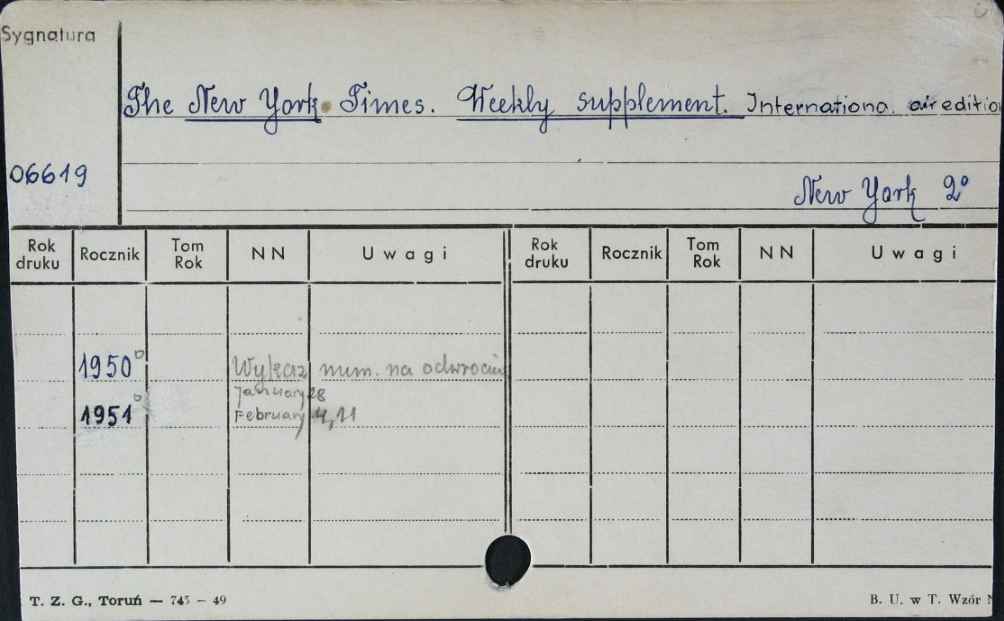 Sygnatura
The New York Times. Weekly supplement. Internationa. air editio
06619
New York 2°
Rok druku Rocznik Tom Rok NN Uwagi Rok druku Rocznik Tom Rok NN Uwagi
1950 Wykaz num. na odwrociu
January 28
1951 February 4, 11
T. Z. G., Toruń — 745 – 49 B. U. w T. Wzór N